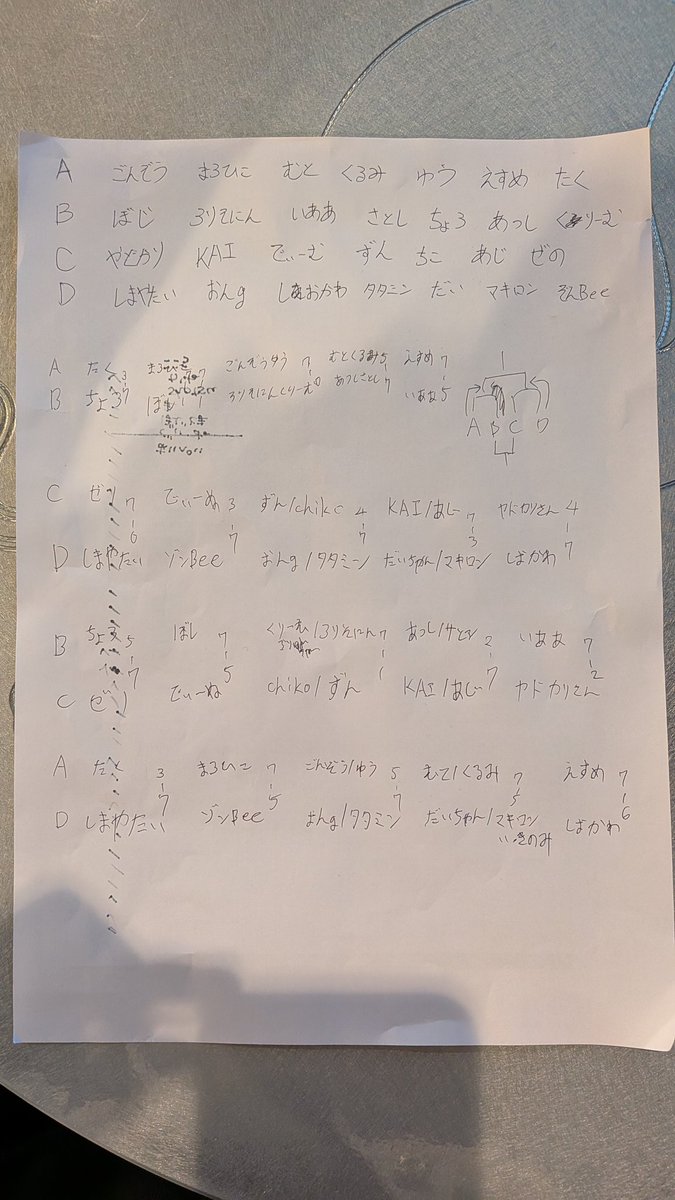 A ごんぞう まろひこ むと くるみ ゆう えすめ たく
B ぼじ ろりそにん いああ さとし ちょろ あっし くりーむ
C やどかり KAI でぃーむ ずん ちこ あじ ぜの
D しまやたい おんg しおかわ タタミン だい マキロン ぞんBee
A たく 3 7 ごんぞうゆう 7 むとくるみ 5 えすめ 7
B ちょろ 7 ぼじ 1 ろりそにんくりーむ 0 あつしさとし 7 いああ 5
1
A B C D
C ゼノ 7 でぃーぬ 3 ずん/chiko 4 KAI/あじー 7 ヤドカリさん 4
D しまやたい 6 ゾンBee 7 おんg/タタミン 7 だいちゃん/マキロン 3 しおかわ 7
B ちょろ 5 ぼじ 7 くりーむ/ろりそにん 7 あっし/サトシ 2 いああ 7
C ゼノ 7 でぃーぬ 5 chiko/ずん 1 KAI/あじー 7 ヤドカリさん 2
A たく 3 まろひこ 7 ごんぞう/ゆう 5 むと/くるみ 7 えすめ 7
D しまやたい 7 ゾンBee 5 おんg/タタミン 7 だいちゃん/マキロン 5 しおかわ 6
いきのみ